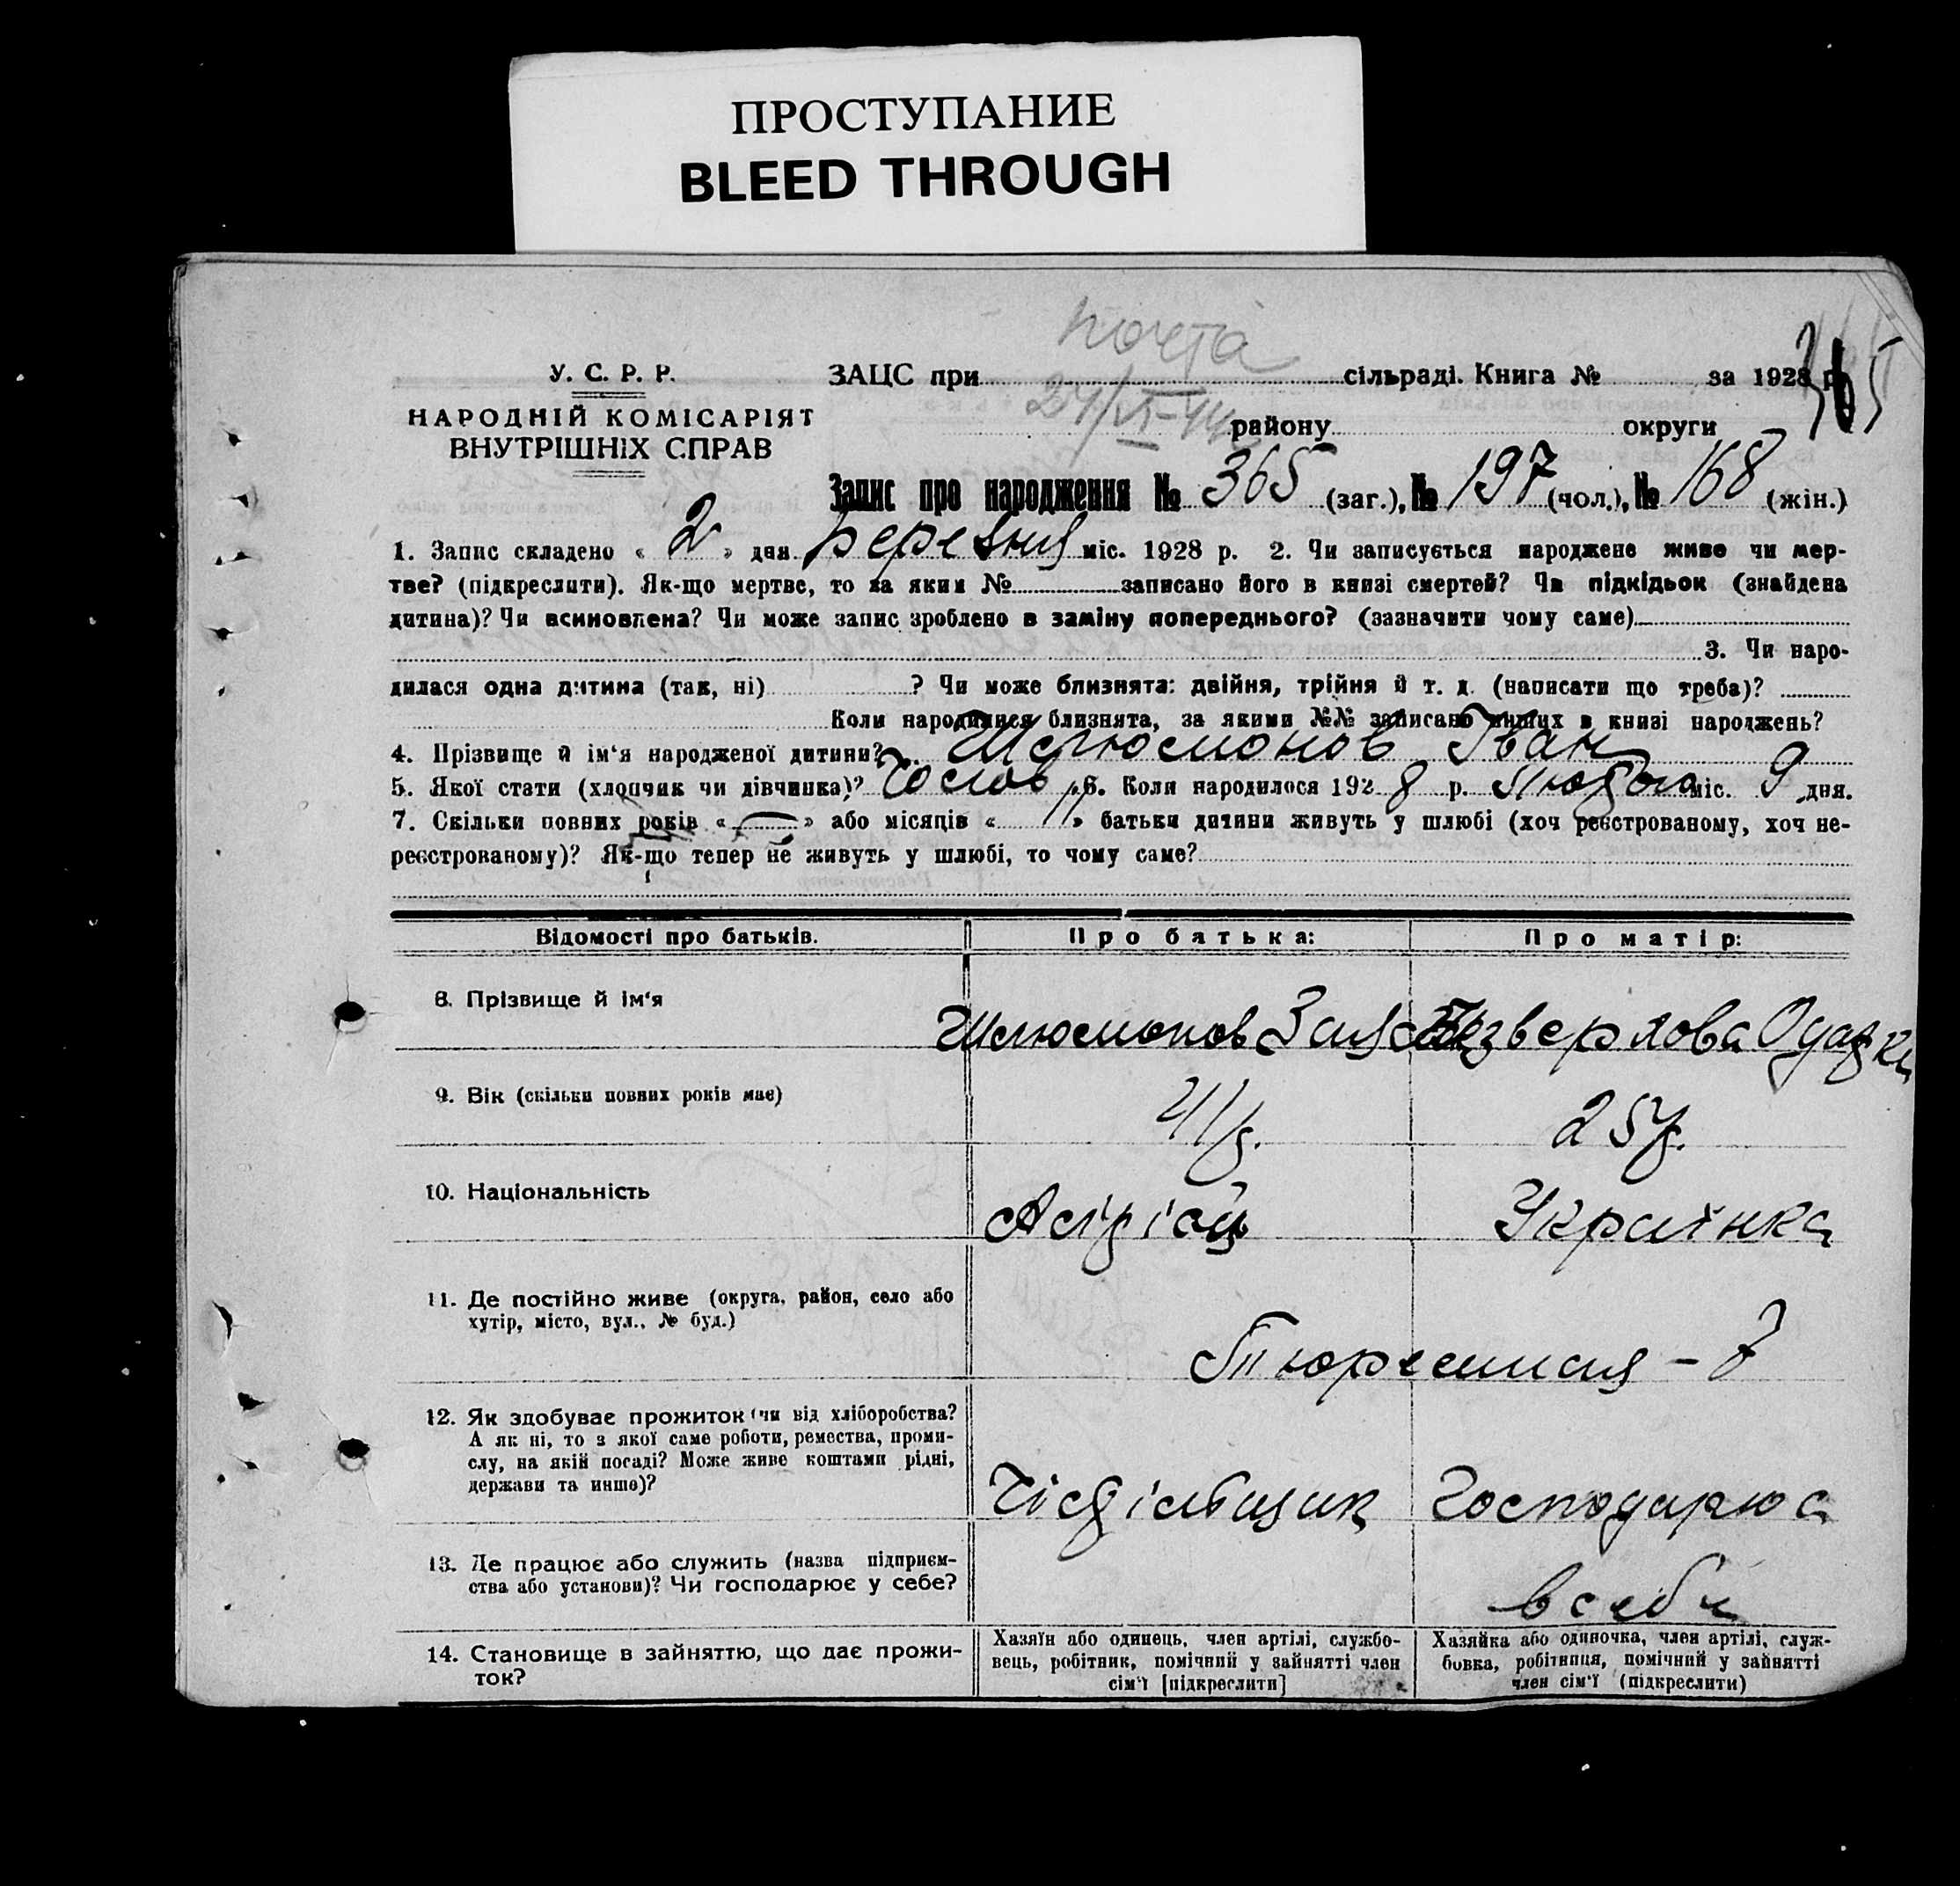 ПРОСТУПАНИЕ
BLEED THROUGH
почта
У. С. Р. Р.
ЗАЦС при сільраді. Книга № за 1928 р.
365
24/VI-44
НАРОДНІЙ КОМІСАРІЯТ
району округи
ВНУТРІШНІХ СПРАВ
Запис про народження № 365 (заг.), № 197 (чол.), № 168 (жін.)
1. Запис складено « 2 » дня березня міс. 1928 р. 2. Чи записується народжене живе чи мер-
тве? (підкреслити). Як-що мертве, то за яким № записано його в книзі смертей? Чи підкідьок (знайдена
дитина)? Чи всиновлена? Чи може запис зроблено в заміну попереднього? (зазначити чому саме)
3. Чи наро-
дилася одна дитина (так, ні) ? Чи може близнята: двійня, трійня й т. д. (написати що треба)?
Коли народилися близнята, за якими №№ записано инших в книзі народжень?
4. Прізвище й ім‘я народженої дитини? Шлюмонов Іван
5. Якої стати (хлопчик чи дівчинка)? Чолов 6. Коли народилося 192 8 р. Лютого міс. 9 дня.
7. Скільки повних років « — » або місяців « 11 » батьки дитини живуть у шлюбі (хоч реєстрованому, хоч не-
реєстрованому)? Як-що тепер не живуть у шлюбі, то чому саме?
Відомості про батьків. Про батька: Про матір:
8. Прізвище й ім‘я
Шлюмонов Безверхова Одарка
9. Вік (скільки повних років має)
41 р. 25 р.
10. Національність
Асірієць Українка
11. Де постійно живе (округа, район, село або
хутір, місто, вул., № буд.)
Тюремная – 7
12. Як здобуває прожиток (чи від хліборобства?
А як ні, то з якої саме роботи, ремества, проми-
слу, на якій посаді? Може живе коштами рідні,
держави та инше)?
Чістільщик Господарює
13. Де працює або служить (назва підприєм-
ства або установи)? Чи господарює у себе?
в себе
14. Становище в зайняттю, що дає прожи-
ток?
Хазяїн або одинець, член артілі, службо-
вець, робітник, помічний у зайнятті член
сім‘ї [підкреслити]
Хазяйка або одиночка, член артілі, служ-
бовка, робітниця, помічний у зайнятті
член сім‘ї (підкреслити)